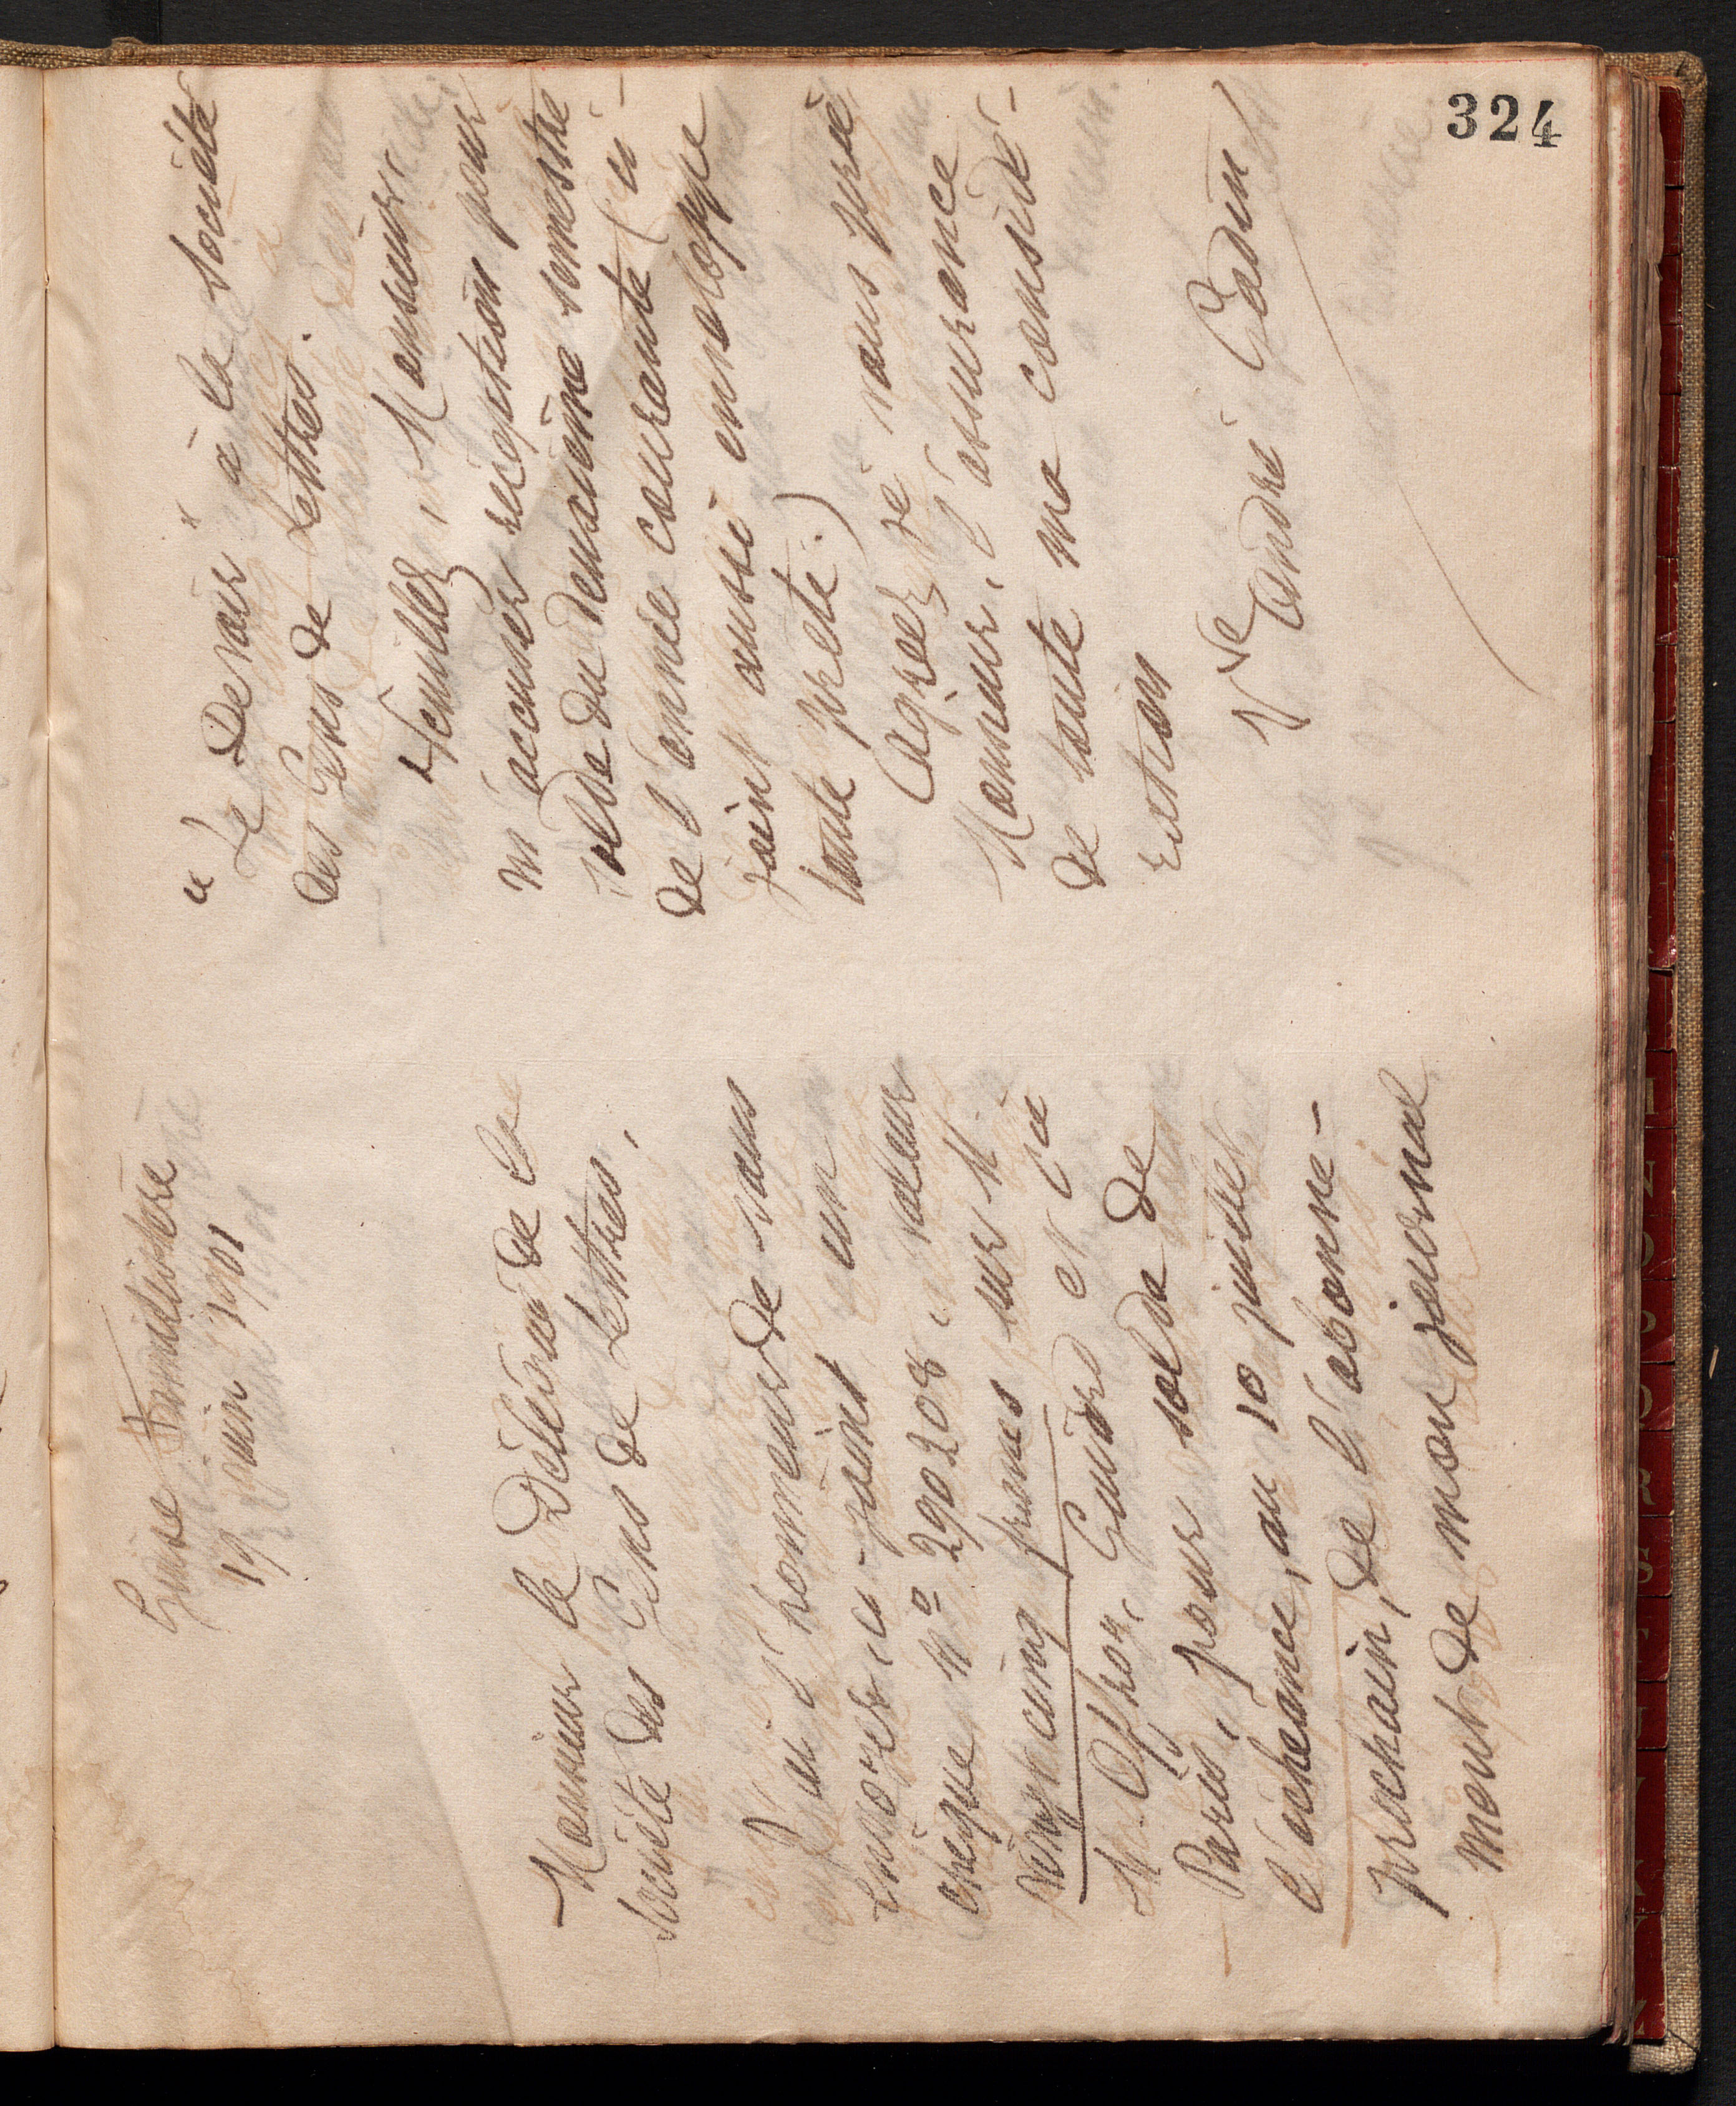 324
Guise Familistère
19 juin 1901
Monsieur le Délégué de la
Société des Gens de Lettres,
J'ai l'honneur de vous
envoyer, ci-joint un
chèque No 290208, valeur
vingt cinq francs sur M.
M. Offroy, Guiard et Cie
Paris, pour solde de
l'échéance, au 10 juillet
prochain, de l'abonne-
ment de mon journal
« Le Devoir » à la Société
des Gens de Lettres.
Veuillez, Monsieur,
m'accuser réception pour
solde du deuxième semestre
de l'année courante (ci-
joint aussi enveloppe
toute prête.)
Agréez, je vous prie,
Monsieur, l'assurance
de toute ma considé-
ration
Vve André Godin